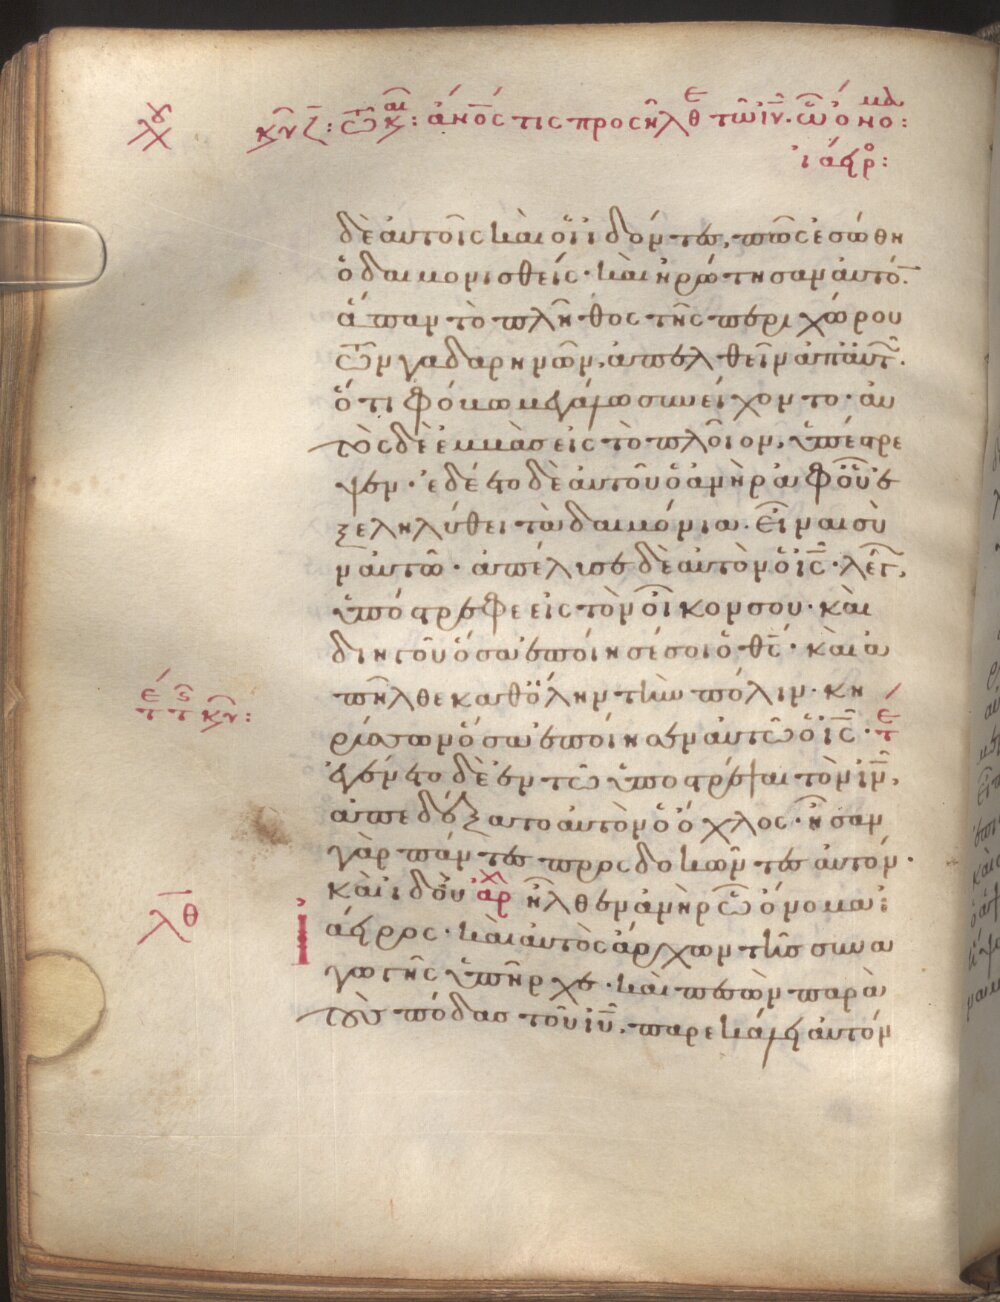 κυ ζ: τω και: ἀνός τις προσῆλθε τῶ ιυ. ὧ ὄνομα:
ἰάειρος:
δὲ αυτοῖς και οἱ ιδόντες, πῶς ἐσώθη
ὁ δαιμονισθείς· και ηρώτησαν αυτὸν
ἅπαν τὸ πλῆθος τῆς περιχώρου
τῶν γαδαρηνῶν, ἀπελθεῖν ἀπ' αὐτῶν.
ὅτι φόβω μεγάλω συνείχοντο· αυ
τὸς δὲ ἐμβὰς εἰς τὸ πλοῖον, ὑπέστρε
ψεν· ἐδέετο δὲ αυτοῦ ὁ ἀνὴρ ἀφ' οὗ ἐ
ξεληλύθει τὰ δαιμόνια. εἶναι σὺ
ν αυτῶ· ἀπέλυσε δὲ αυτὸν ὁ ις· λέγων,
ὑπόστρεφε εἰς τὸν οἶκον σου· καὶ
διηγοῦ ὅσα ἐποίησέ σοι ὁ θς· καὶ ἀ
πῆλθε καθ' ὅλην τὴν πόλιν· κη
ρύσσων ὅσα ἐποίησεν αυτῶ ὁ ις· τε
ἐγένετο δὲ ἐν τῶ ὑποστρέψαι τὸν ιν,
ἀπεδέξατο αυτὸν ὁ ὄχλος· ἦσαν
γὰρ πάντες προσδοκῶντες αυτόν·
λθ
καὶ ἰδοὺ αρχ ἦλθεν ἀνὴρ ὧ ὄνομα ἰ
άειρος· και αυτὸς ἄρχων τῆς συνα
γωγῆς ὑπῆρχε· και πεσὼν παρὰ
τοὺς πόδας τοῦ ιυ, παρεκάλει αυτόν